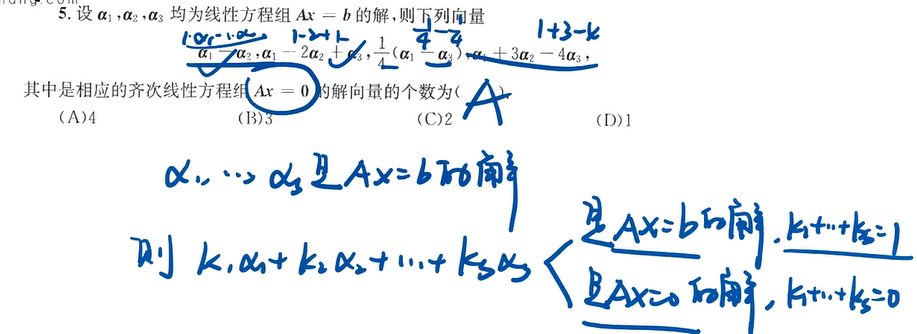 5. 设 α₁,α₂,α₃ 均为线性方程组 Ax = b 的解,则下列向量
1·α₁-1·α₂ 1-2+1 1/4-1/4 1+3-4
α₁ - α₂,α₁ - 2α₂ + α₃,1/4(α₁ - α₃),α₁ + 3α₂ - 4α₃,
其中是相应的齐次线性方程组 Ax = 0 的解向量的个数为( A )
(A)4 (B)3 (C)2 (D)1
α₁, ⋯, αs 是 Ax=b 的解
是 Ax=b 的解, k₁+⋯+ks=1
则 k₁α₁+k₂α₂+⋯+ksαs
是 Ax=0 的解, k₁+⋯+ks=0